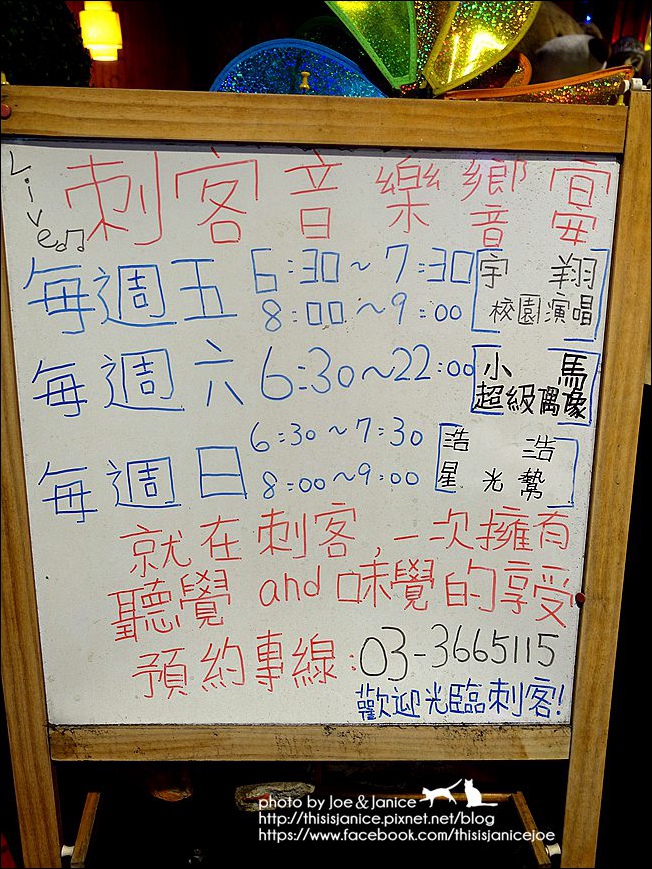 Live♫ 刺客音樂響宴
每週五 6:30~7:30 宇翔
8:00~9:00 校園演唱
每週六 6:30~22:00 小馬
超級偶像
每週日 6:30~7:30 浩浩
8:00~9:00 星光幫
就在刺客,一次擁有
聽覺 and 味覺的享受
預約專線:03-3665115
歡迎光臨刺客!
photo by Joe & Janice
http://thisisjanice.pixnet.net/blog
https://www.facebook.com/thisisjanicejoe